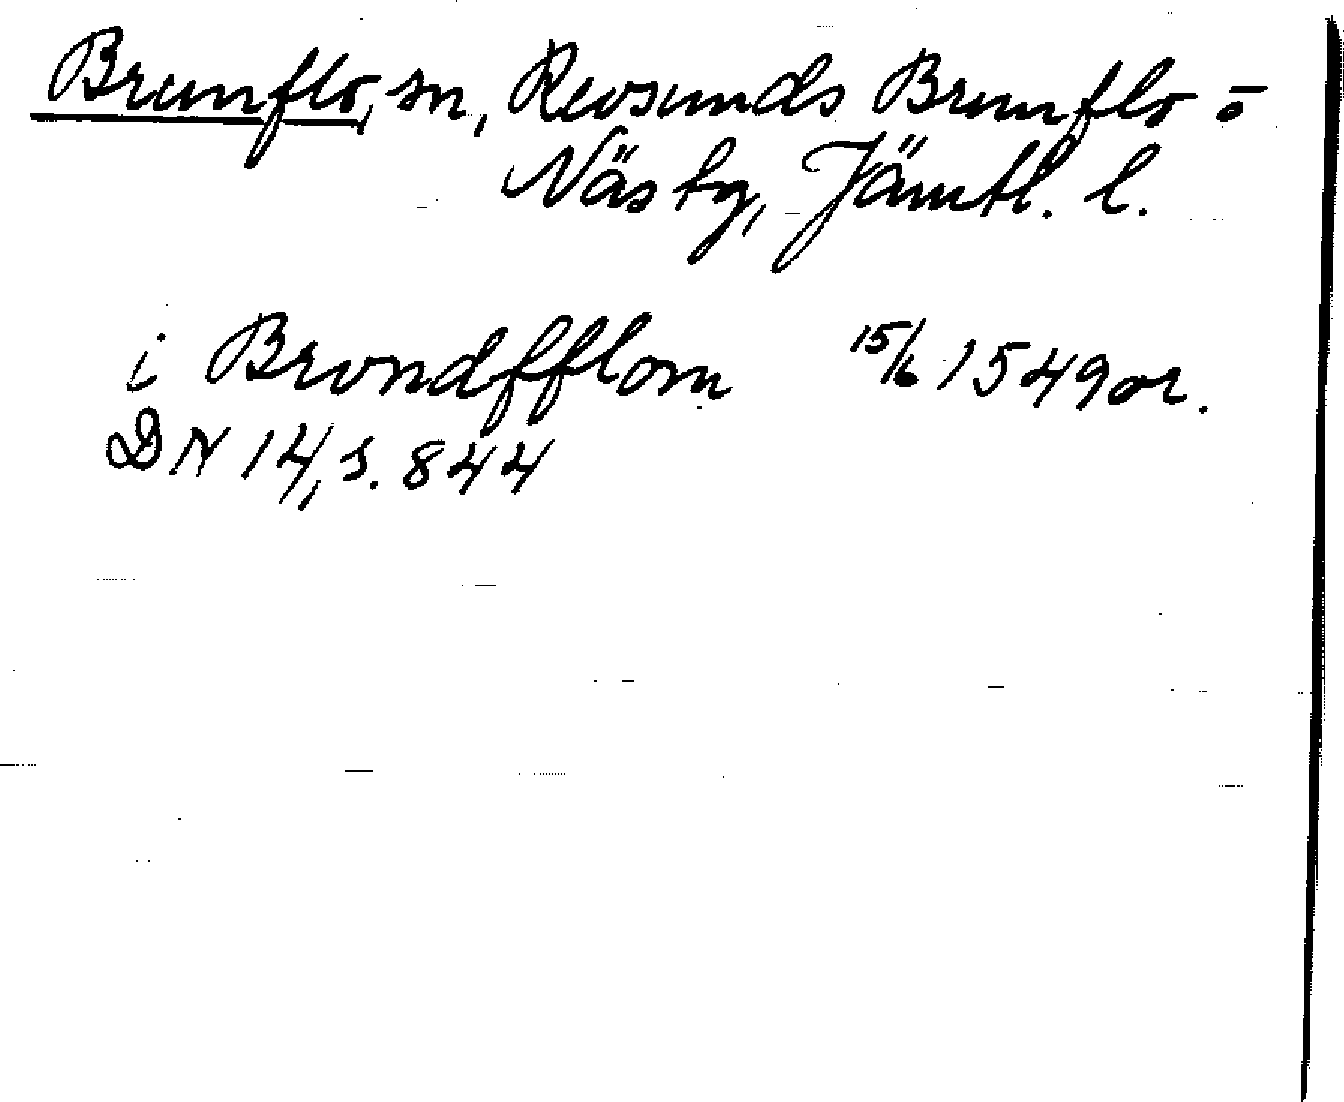 Brunflo, sn, Revsunds Brunflo o
Näs tg, Jämtl. l.
i Brondfflom 15/6 1549 or.
DN 14, s. 844